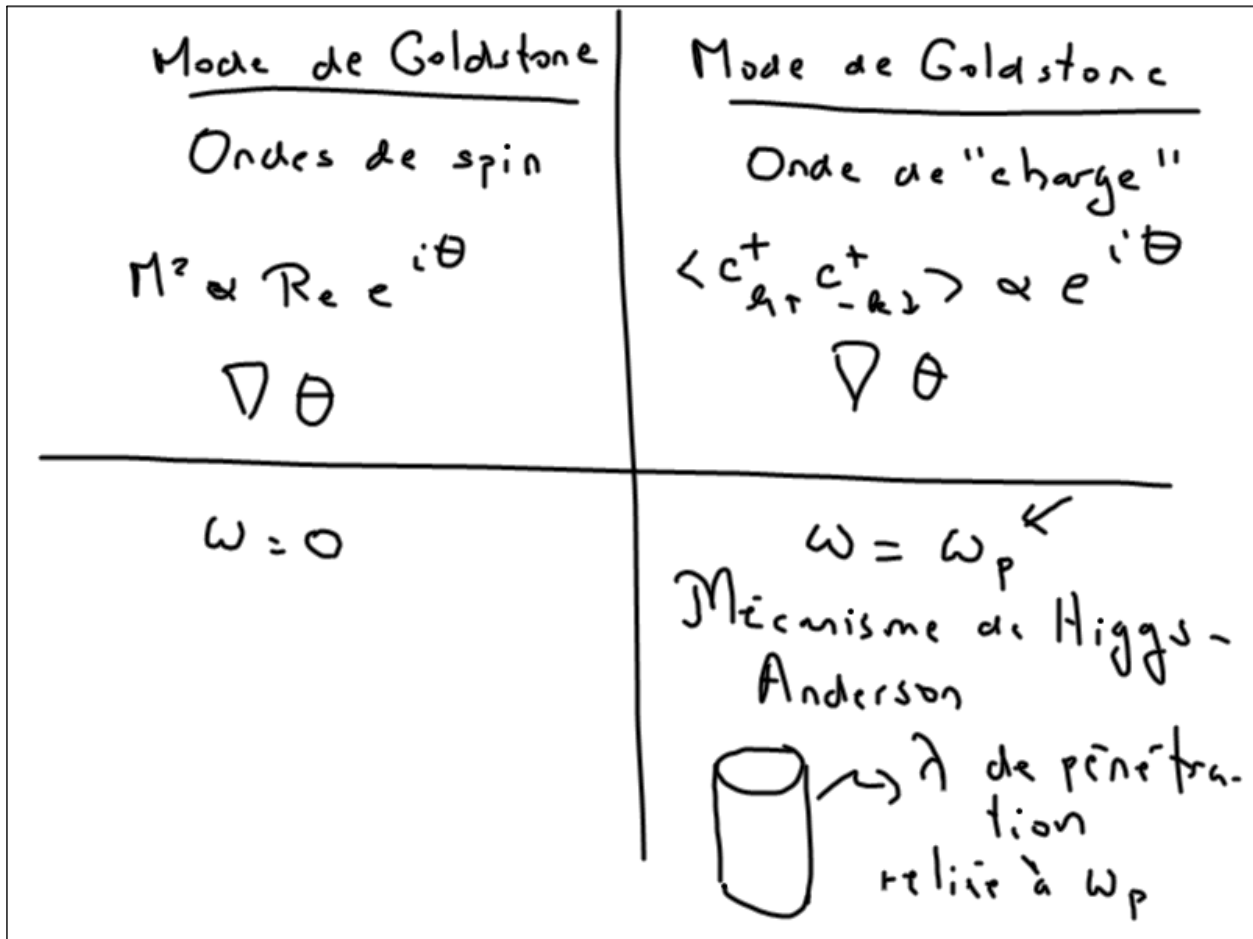 Mode de Goldstone
Ondes de spin
M^z ∝ Re e^{iθ}
∇ θ
ω = 0
Mode de Goldstone
Onde de "charge"
< c^+_{k↑} c^+_{-k↓} > ∝ e^{iθ}
∇ θ
ω = ω_p ←
Mécanisme de Higgs -
Anderson
λ de pénétra-
tion
reliée à ω_p